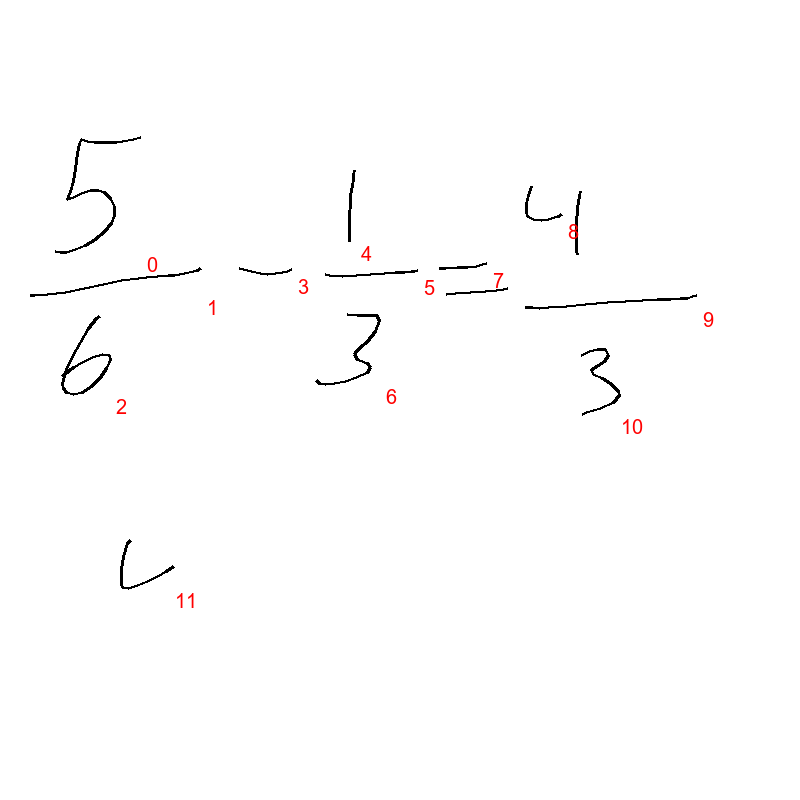 5/6 - 1/3 = 4/3
0 1 2 3 4 5 6 7 8 9 10
11